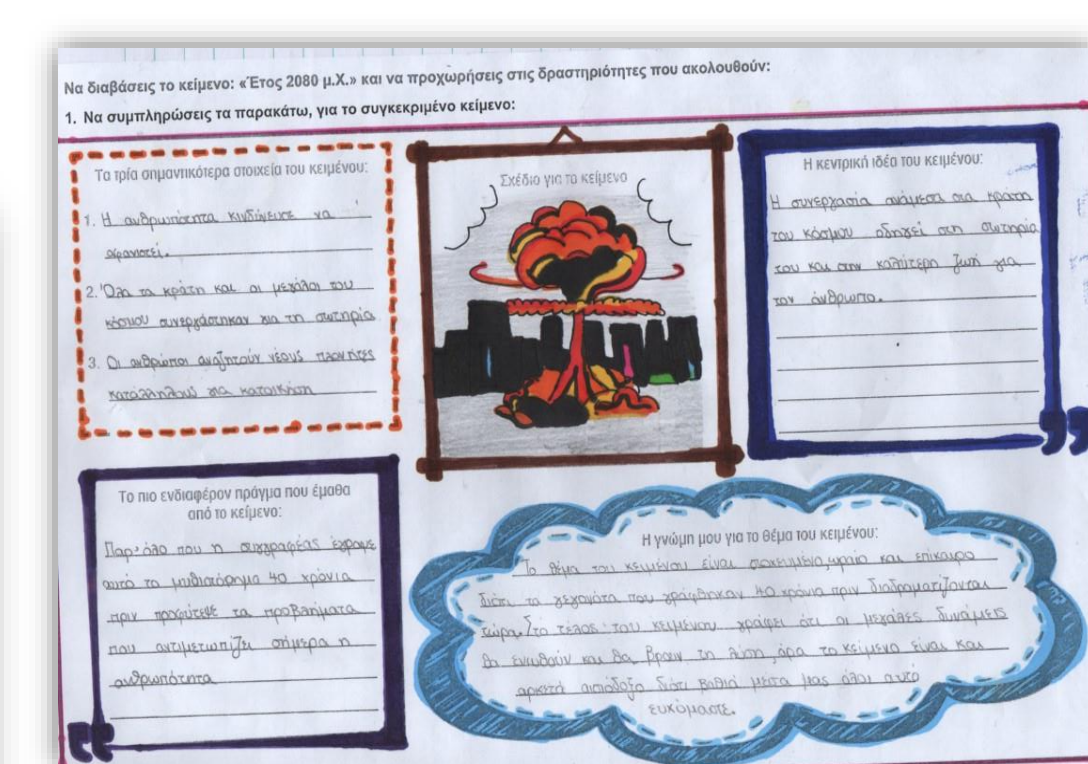 Να διαβάσεις το κείμενο: «Έτος 2080 μ.Χ.» και να προχωρήσεις στις δραστηριότητες που ακολουθούν:
1. Να συμπληρώσεις τα παρακάτω, για το συγκεκριμένο κείμενο:
Τα τρία σημαντικότερα στοιχεία του κειμένου:
1. Η ανθρωπότητα κινδύνευσε να
αφανιστεί.
2. Όλα τα κράτη και οι μεγάλοι του
κόσμου συνεργάστηκαν για τη σωτηρία
3. Οι άνθρωποι αναζητούν νέους πλανήτες
κατάλληλους για κατοίκηση
Σχέδιο για το κείμενο
Η κεντρική ιδέα του κειμένου:
Η συνεργασία ανάμεσα στα κράτη
του κόσμου οδηγεί στη σωτηρία
του και στην καλύτερη ζωή για
τον άνθρωπο.
Το πιο ενδιαφέρον πράγμα που έμαθα
από το κείμενο:
Παρ' όλο που η συγγραφέας έγραψε
αυτό το μυθιστόρημα 40 χρόνια
πριν προφύτεψε τα προβλήματα
που αντιμετωπίζει σήμερα η
ανθρωπότητα
Η γνώμη μου για το θέμα του κειμένου:
Το θέμα του κειμένου είναι ωραίο και επίκαιρο
διότι τα γεγονότα που γράφθηκαν 40 χρόνια πριν διαδραματίζονται
τώρα. Στο τέλος του κειμένου γράφει ότι οι μεγάλες δυνάμεις
θα ενωθούν και θα βρουν τη λύση, άρα το κείμενο είναι και
αρκετά αισιόδοξο διότι βαθιά μέσα μας όλοι αυτό
ευχόμαστε.